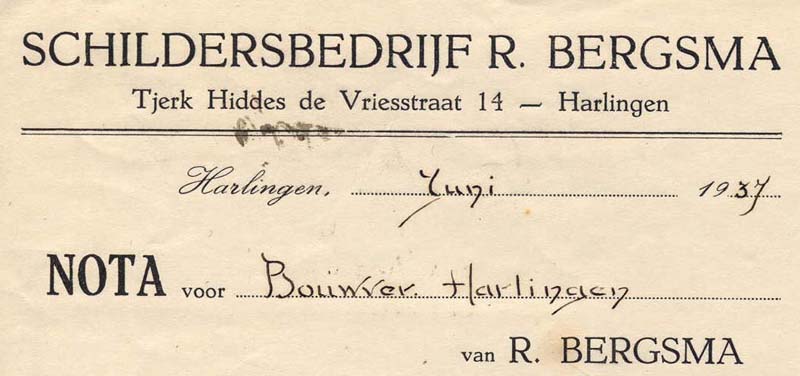 SCHILDERSBEDRIJF R. BERGSMA
Tjerk Hiddes de Vriesstraat 14 — Harlingen
Harlingen, Juni 1937
NOTA voor Bouwver. Harlingen
van R. BERGSMA